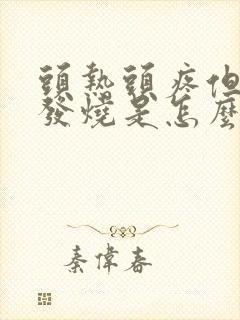 頭熱頭疼但
發燒是怎麼
秦偉春